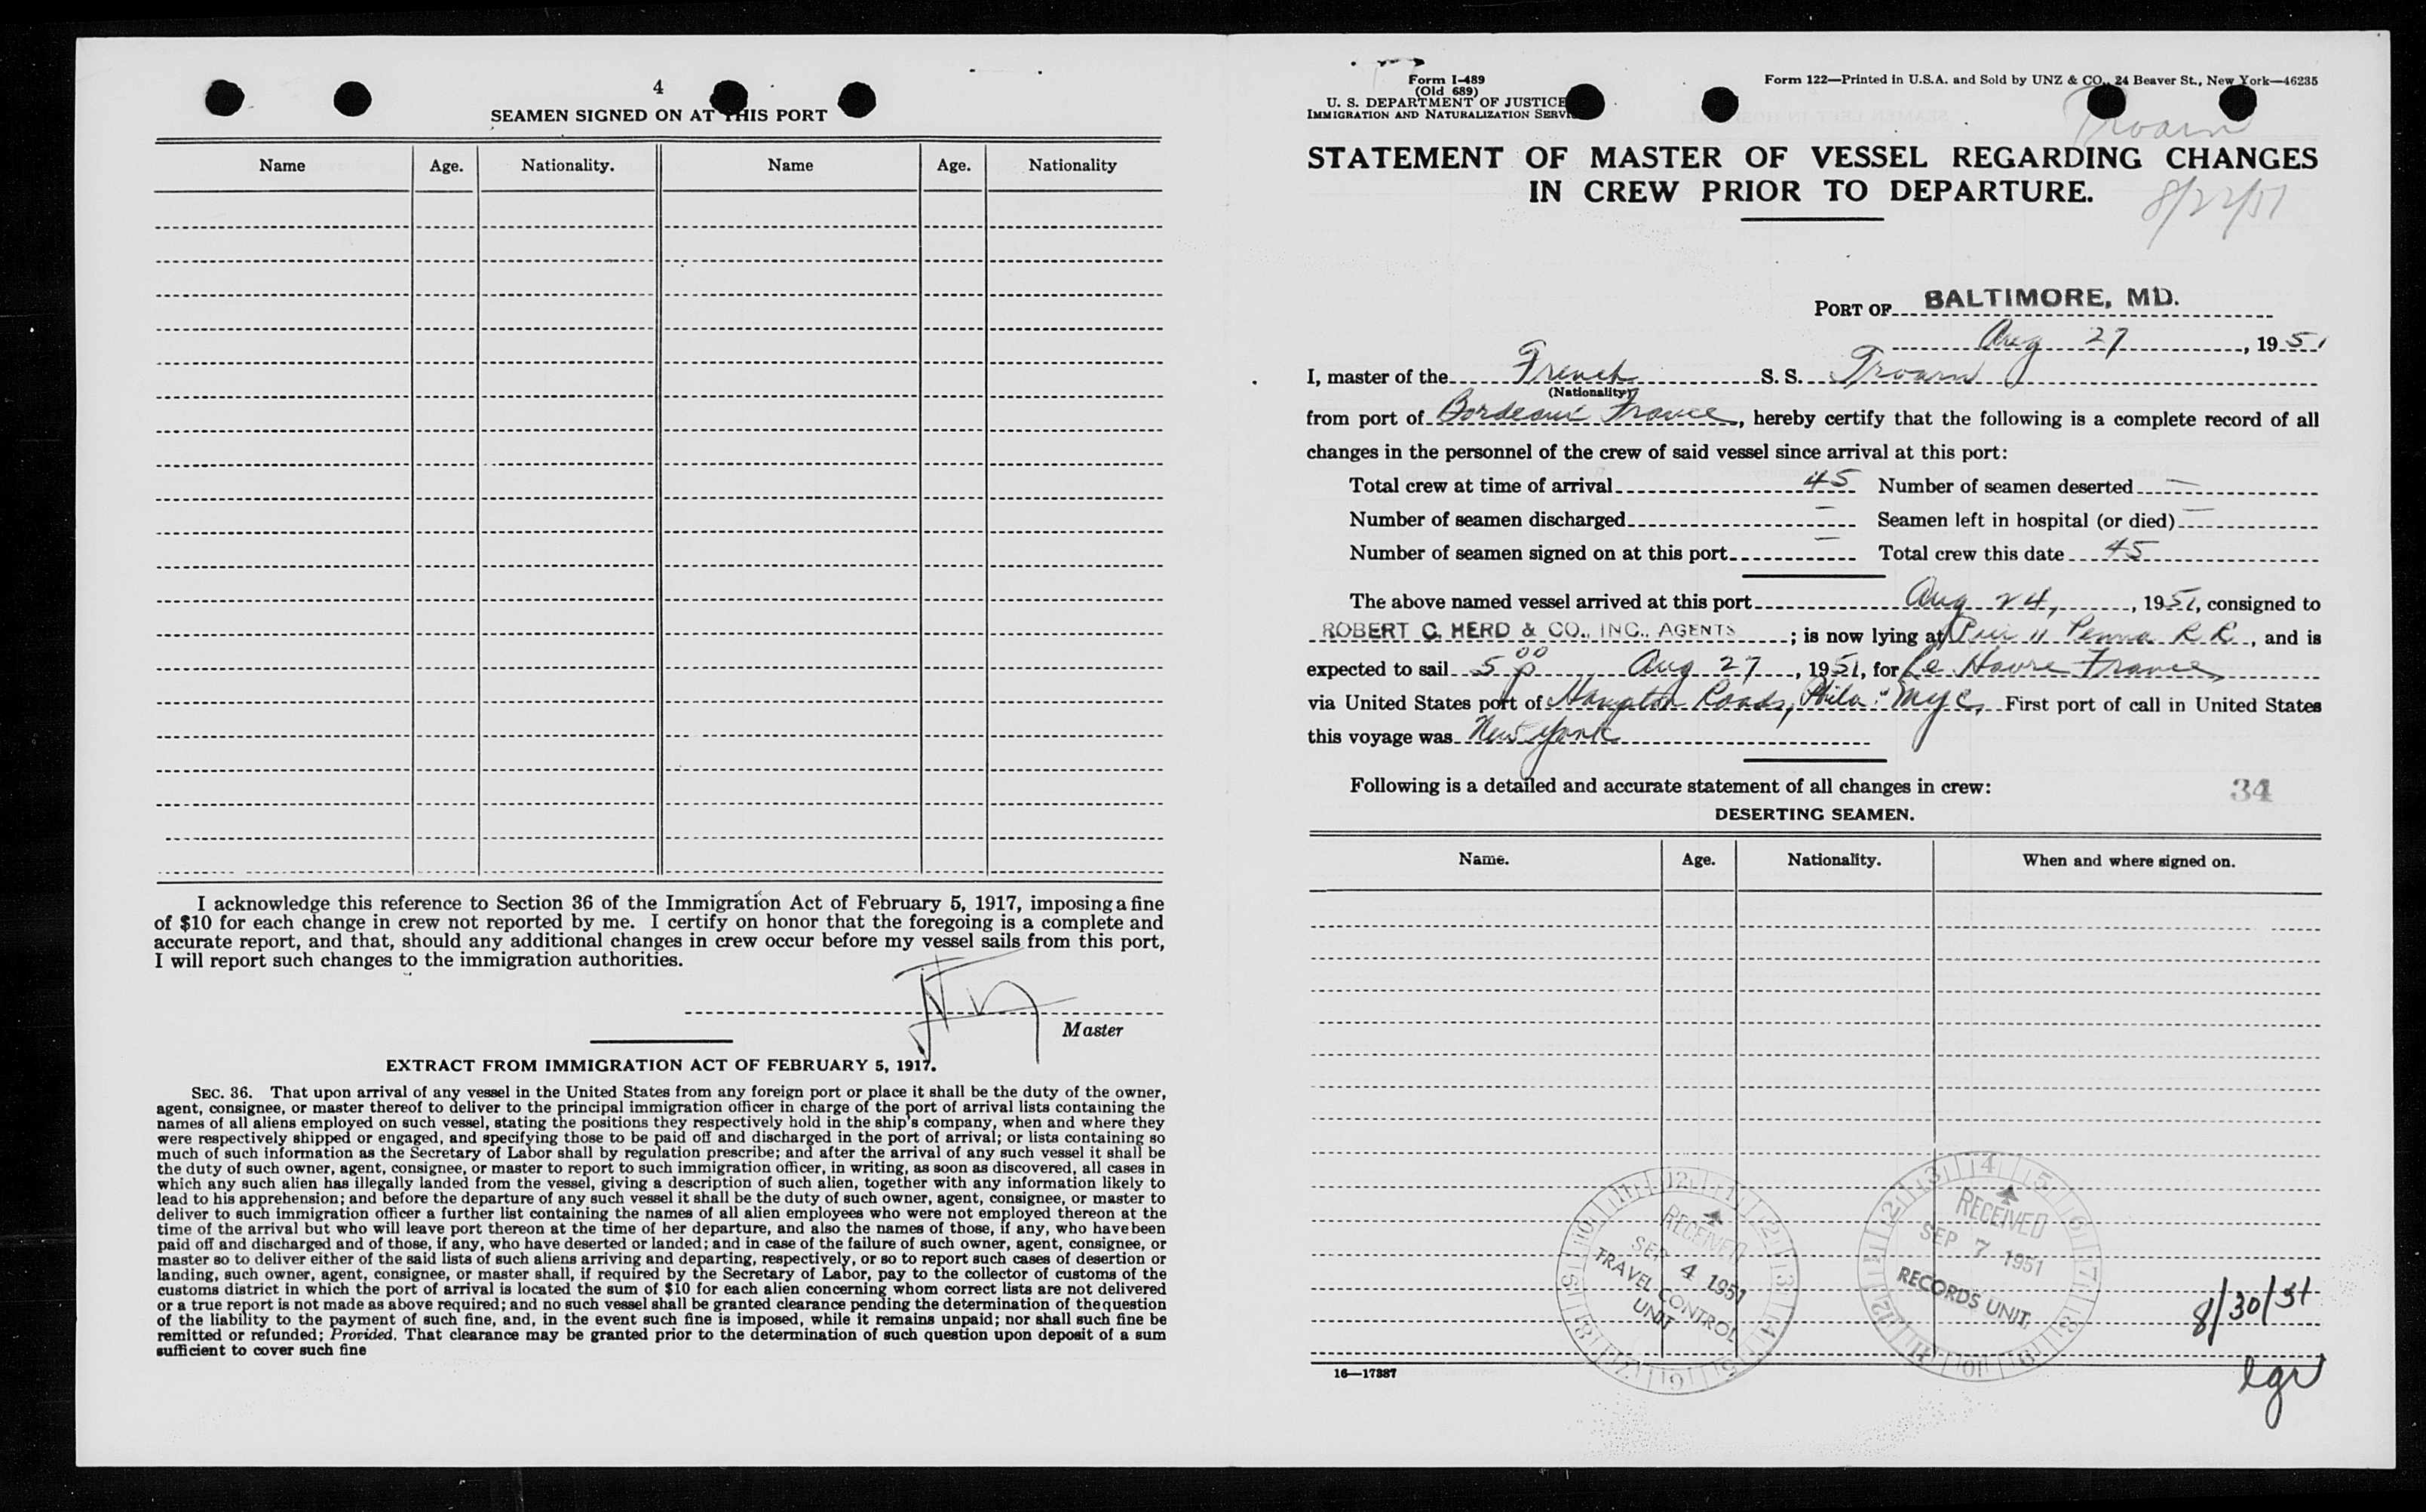 4
SEAMEN SIGNED ON AT THIS PORT
Name Age. Nationality. Name Age. Nationality
I acknowledge this reference to Section 36 of the Immigration Act of February 5, 1917, imposing a fine
of $10 for each change in crew not reported by me. I certify on honor that the foregoing is a complete and
accurate report, and that, should any additional changes in crew occur before my vessel sails from this port,
I will report such changes to the immigration authorities.
Master
EXTRACT FROM IMMIGRATION ACT OF FEBRUARY 5, 1917.
SEC. 36. That upon arrival of any vessel in the United States from any foreign port or place it shall be the duty of the owner,
agent, consignee, or master thereof to deliver to the principal immigration officer in charge of the port of arrival lists containing the
names of all aliens employed on such vessel, stating the positions they respectively hold in the ship's company, when and where they
were respectively shipped or engaged, and specifying those to be paid off and discharged in the port of arrival; or lists containing so
much of such information as the Secretary of Labor shall by regulation prescribe; and after the arrival of any such vessel it shall be
the duty of such owner, agent, consignee, or master to report to such immigration officer, in writing, as soon as discovered, all cases in
which any such alien has illegally landed from the vessel, giving a description of such alien, together with any information likely to
lead to his apprehension; and before the departure of any such vessel it shall be the duty of such owner, agent, consignee, or master to
deliver to such immigration officer a further list containing the names of all alien employees who were not employed thereon at the
time of the arrival but who will leave port thereon at the time of her departure, and also the names of those, if any, who have been
paid off and discharged and of those, if any, who have deserted or landed; and in case of the failure of such owner, agent, consignee, or
master so to deliver either of the said lists of such aliens arriving and departing, respectively, or so to report such cases of desertion or
landing, such owner, agent, consignee, or master shall, if required by the Secretary of Labor, pay to the collector of customs of the
customs district in which the port of arrival is located the sum of $10 for each alien concerning whom correct lists are not delivered
or a true report is not made as above required; and no such vessel shall be granted clearance pending the determination of the question
of the liability to the payment of such fine, and, in the event such fine is imposed, while it remains unpaid; nor shall such fine be
remitted or refunded; Provided, That clearance may be granted prior to the determination of such question upon deposit of a sum
sufficient to cover such fine
Form I-489
(Old 689)
U. S. DEPARTMENT OF JUSTICE
IMMIGRATION AND NATURALIZATION SERVI
Form 122—Printed in U.S.A. and Sold by UNZ & CO., 24 Beaver St., New York—46235
Troarn
STATEMENT OF MASTER OF VESSEL REGARDING CHANGES
IN CREW PRIOR TO DEPARTURE.
8/22/51
PORT OF BALTIMORE, MD.
Aug 27, 1951
I, master of the French S. S. Troarn
(Nationality)
from port of Bordeaux France, hereby certify that the following is a complete record of all
changes in the personnel of the crew of said vessel since arrival at this port:
Total crew at time of arrival 45 Number of seamen deserted —
Number of seamen discharged — Seamen left in hospital (or died) —
Number of seamen signed on at this port — Total crew this date 45
The above named vessel arrived at this port Aug 24, 1951, consigned to
ROBERT C. HERD & CO., INC., AGENTS; is now lying at Pier 11 Penna R R, and is
expected to sail 5 00 p Aug 27, 1951, for Le Havre France,
via United States port of Hampton Roads, Phila. " NYC, First port of call in United States
this voyage was New York
Following is a detailed and accurate statement of all changes in crew:
34
DESERTING SEAMEN.
Name. Age. Nationality. When and where signed on.
RECEIVED
SEP 4 1951
TRAVEL CONTROL
UNIT
RECEIVED
SEP 7 1951
RECORDS UNIT
8/30/51
16—17387